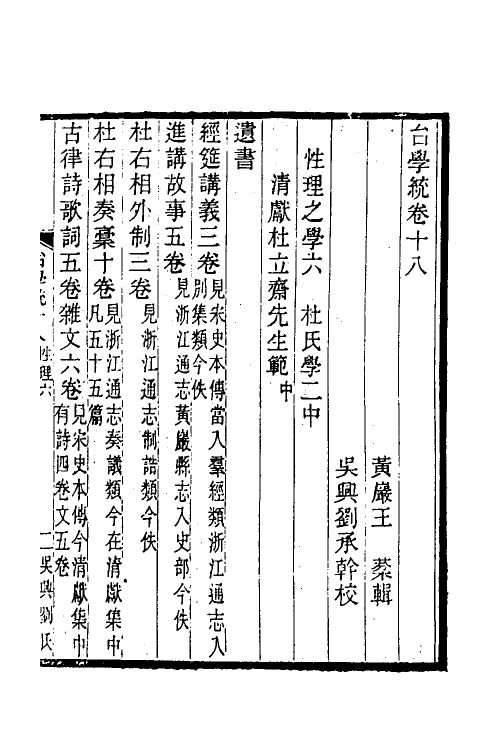 台學統卷十八
黃巖王　棻輯
吳興劉承幹校
性理之學六　杜氏學二中
清獻杜立齋先生範中
遺書
經筵講義三卷見宋史本傳當入羣經類浙江通志入別集類今佚
進講故事五卷見浙江通志黃巖縣志入史部今佚
杜右相外制三卷見浙江通志制誥類今佚
杜右相奏稾十卷見浙江通志奏議類今在清獻集中凡五十五篇
古律詩歌詞五卷雜文六卷見宋史本傳今清獻集中有詩四卷文五卷
台學統十八 性理六　一　吳興劉氏